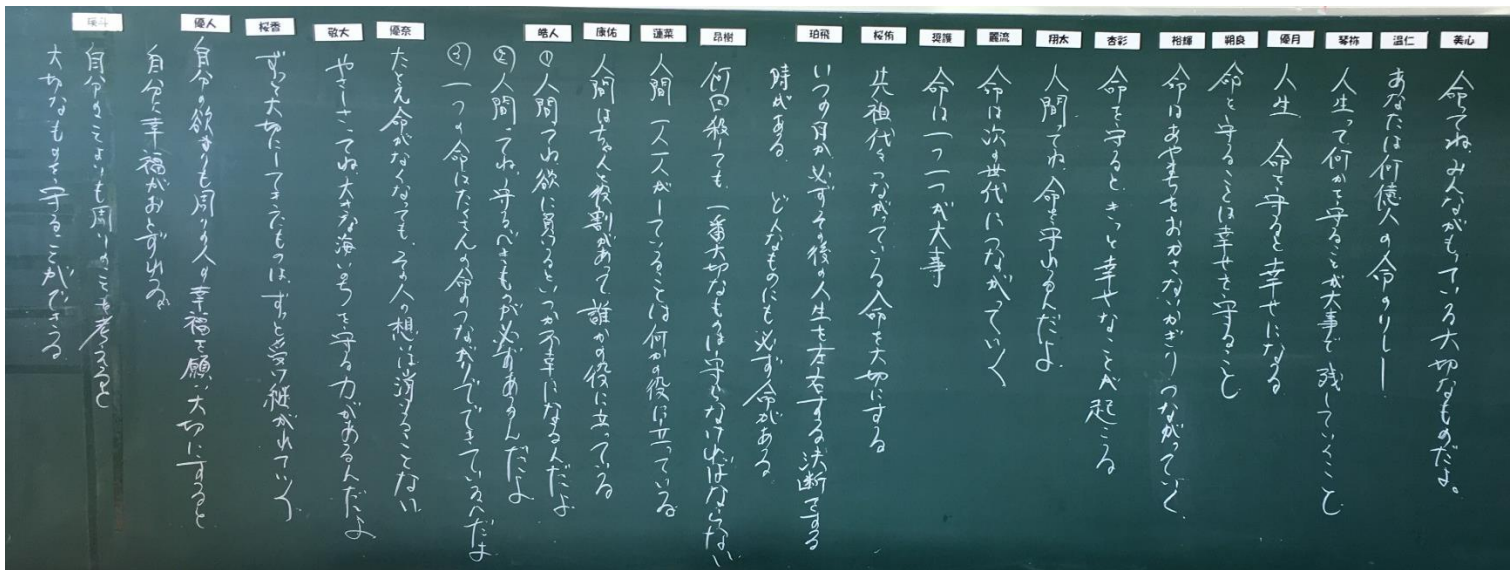 美心
命ってね、みんながもっている大切なものだよ。
温仁
あなたは何億人の命のリレー
琴祢
人生って何かを守ることが大事で残していくこと
優月
人生、命を守ると幸せになる
朔良
命を守ることは幸せを守ること
裕輝
命はあやまちをおかさないかぎりつながっていく
杏彩
命を守ると、きっと幸せなことが起こる
翔太
人間ってね、命を守れる人だよ
麗流
命は次の世代につながっていく
奨護
命は一つ一つが大事
桜侑
先祖代々つながっている命を大切にする
珀飛
いつの日か必ずその後の人生を左右する決断をする
時がある どんなものにも必ず命がある
昂樹
何回殺しても、一番大切なものは守らなければならない
蓮菜
人間一人一人がしていることは何かの役に立っている
康佑
人間はちゃんと役割があって誰かの役に立っている
皓人
①人間ってね欲に負けるといつか不幸になるんだよ
②人間ってね、守るべきものが必ずあるんだよ
③一つの命はたくさんの命のつながりでできているんだよ
優奈
たとえ命がなくなっても、その人の想いは消えることない
敬大
やさしさってね大きな海いのちを守る力があるんだよ
桜香
ずっと大切にしてきたものはずっと受け継がれていく
優人
自分の欲よりも周りの人の幸福を願い大切にすると
自分に幸福がおとずれる
自分のことよりも周りのことを考えると
大切なものを守ることができる